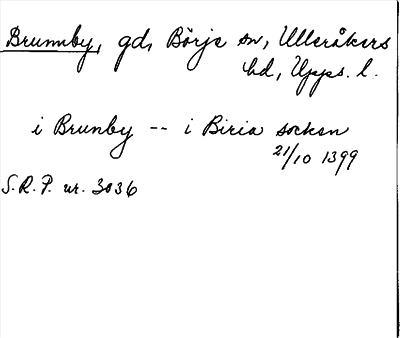 Brunnby, gd, Börje sn, Ulleråkers
hd, Upps. l.
i Brunby -- i Biria soken
21/10 1399
S.R.P. nr. 3036